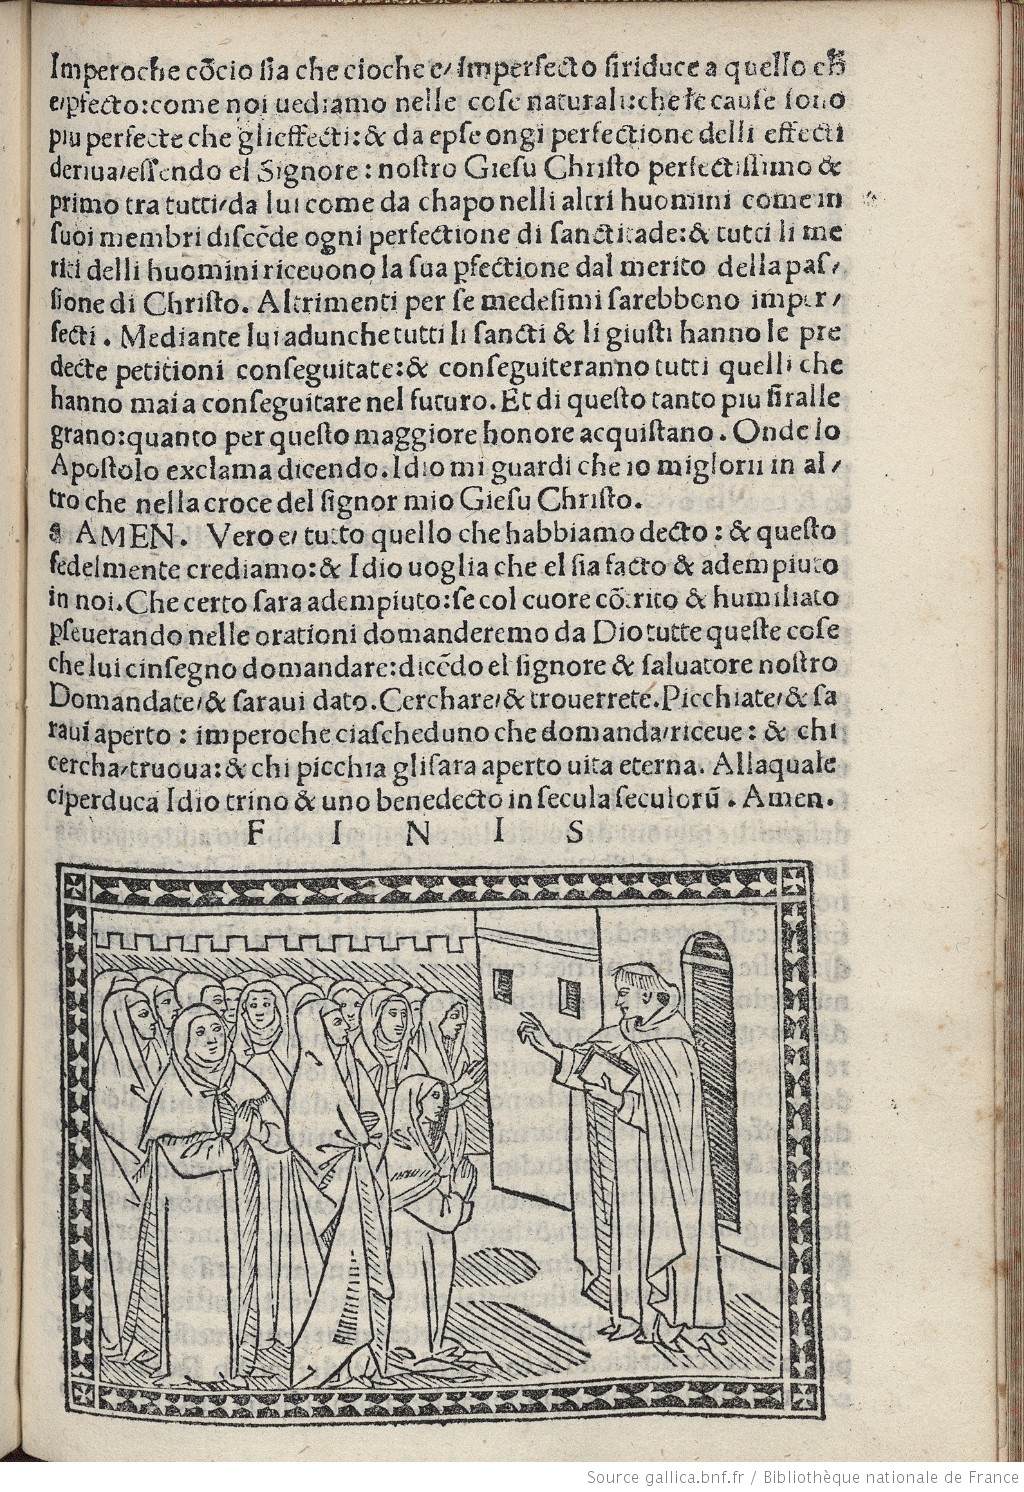 Imperoche cōcio sia che cioche e/ imperfecto siriduce a quello ch
e/pfecto:come noi uediamo nelle cose naturali:che le cause sono
piu perfecte che glieffecti:& da epse ongi perfectione delli effecti
deriua/essendo el Signore : nostro Giesu Christo perfectissimo &
primo tra tutti/da lui come da chapo nelli altri huomini come in
suoi membri discēde ogni perfectione di sanctitade:& tutti li me
riti delli huomini riceuono la sua pfectione dal merito della pas/
sione di Christo. Altrimenti per se medesimi sarebbono imper/
fecti . Mediante lui adunche tutti li sancti & li giusti hanno le pre
decte petitioni conseguitate:& conseguiteranno tutti quelli che
hanno mai a conseguitare nel futuro. Et di questo tanto piu si ralle
grano:quanto per questo maggiore honore acquistano. Onde lo
Apostolo exclama dicendo. Idio mi guardi che io miglorii in al/
tro che nella croce del signor mio Giesu Christo.
¶ AMEN. Vero e/ tutto quello che habbiamo decto : & questo
fedelmente crediamo:& Idio uoglia che el sia facto & adempiuto
in noi. Che certo sara adempiuto:se col cuore cōtrito & humiliato
pseuerando nelle orationi domanderemo da Dio tutte queste cose
che lui cinsegno domandare:dicēdo el signore & saluatore nostro
Domandate/& saraui dato. Cerchare/& trouerrete. Picchiate/& sa
raui aperto : imperoche ciascheduno che domanda/riceue : & chi
cercha/truoua:& chi picchia gli sara aperto uita eterna. Allaquale
ciperduca Idio trino & uno benedecto in secula seculorū . Amen.
F I N I S
Source gallica.bnf.fr / Bibliothèque nationale de France